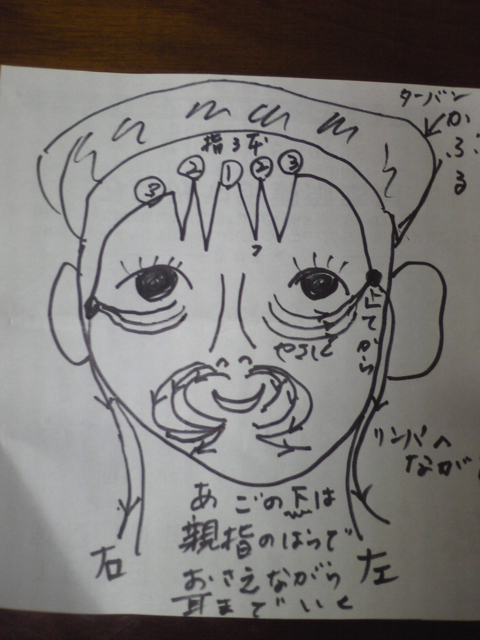 ターバン
かぶる
指3本
③ ② ① ② ③
やさしく
止てから
リンパへ
ながす
あごの下は
親指のはらで
おさえながら
耳までいく
右
左